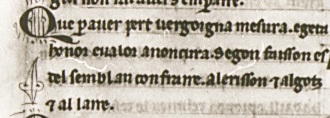 Que pauer pert uergoigna mesura. egeta
honor eualor anoncura. Segon faisson es
del semblan con fraire. alerisson ⁊ algotz
⁊ al laire.